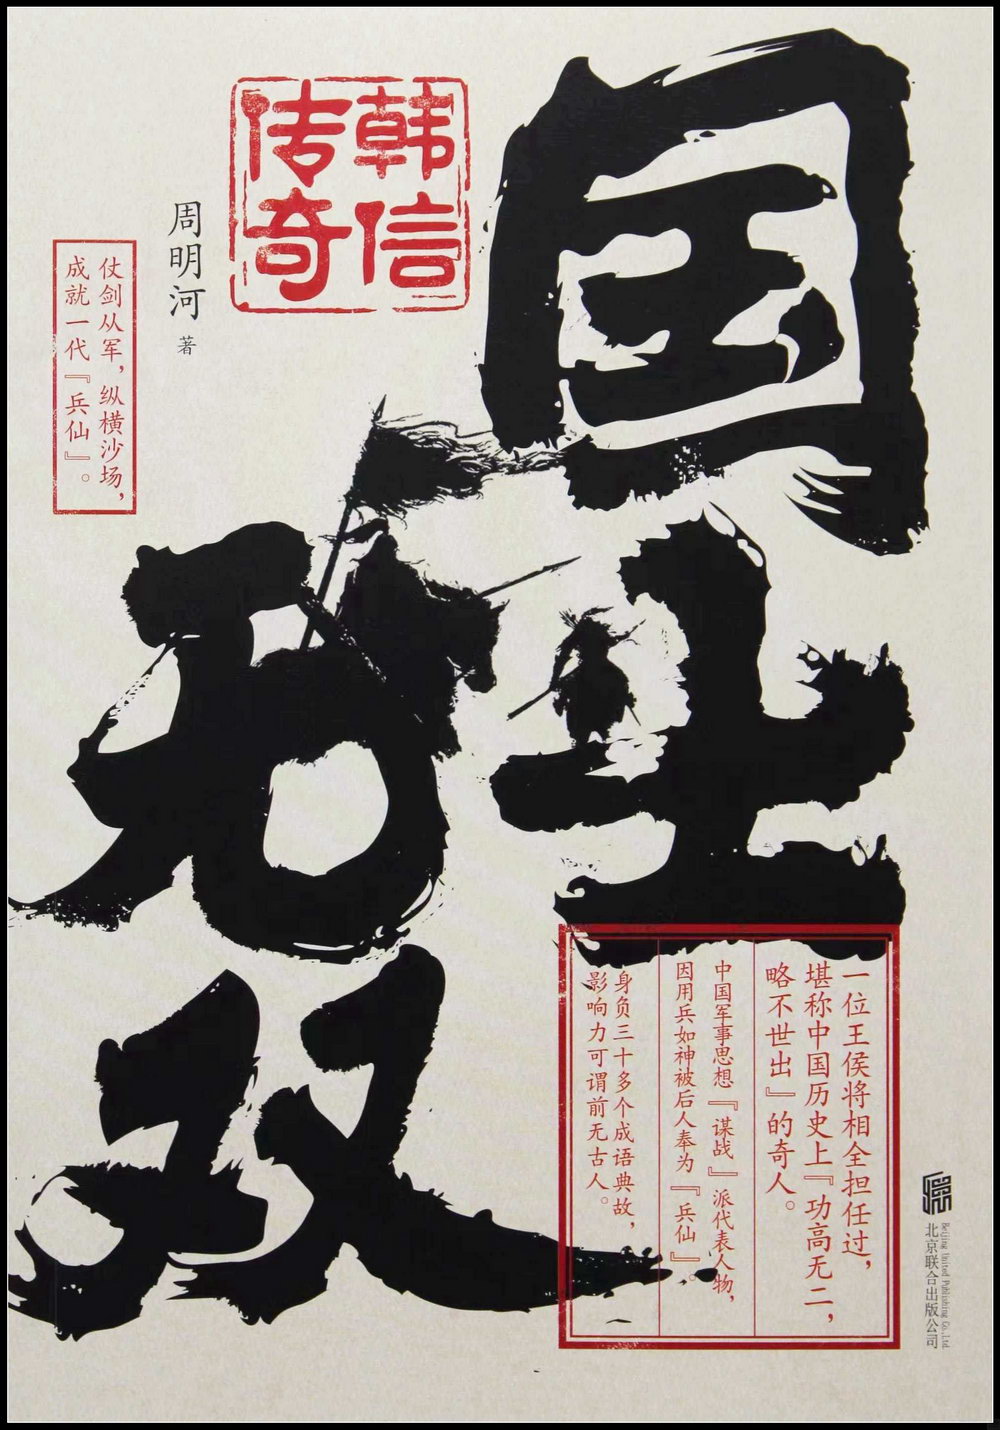 国士
无双
韩信
传奇
周明河 著
仗剑从军，纵横沙场，
成就一代『兵仙』。
一位王侯将相全担任过，
堪称中国历史上『功高无二，
略不世出』的奇人。
中国军事思想『谋战』派代表人物，
因用兵如神被后人奉为『兵仙』。
身负三十多个成语典故，
影响力可谓前无古人。
北京联合出版公司
Beijing United Publishing Co.,Ltd.